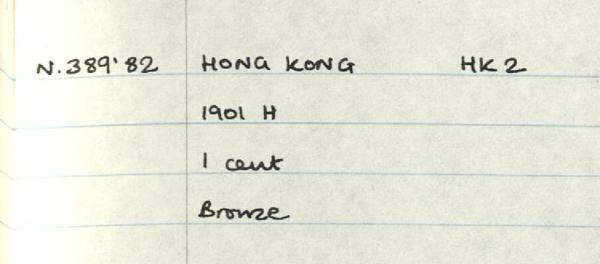 N.389'82 HONG KONG HK 2
1901 H
1 cent
Bronze